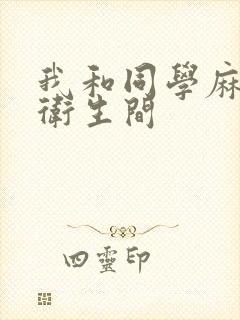 我和同學麻
衛生間
四靈印